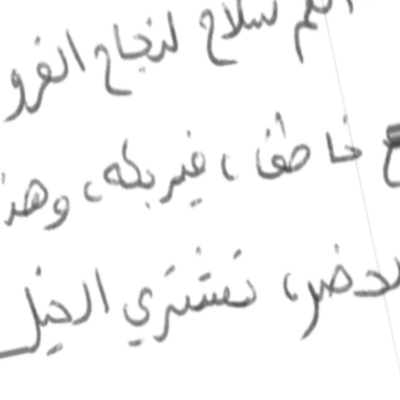 لسلاح لنجاح الفرو
خاطئ، فيربكه، وهذ
لحضر، تشتري الخيل